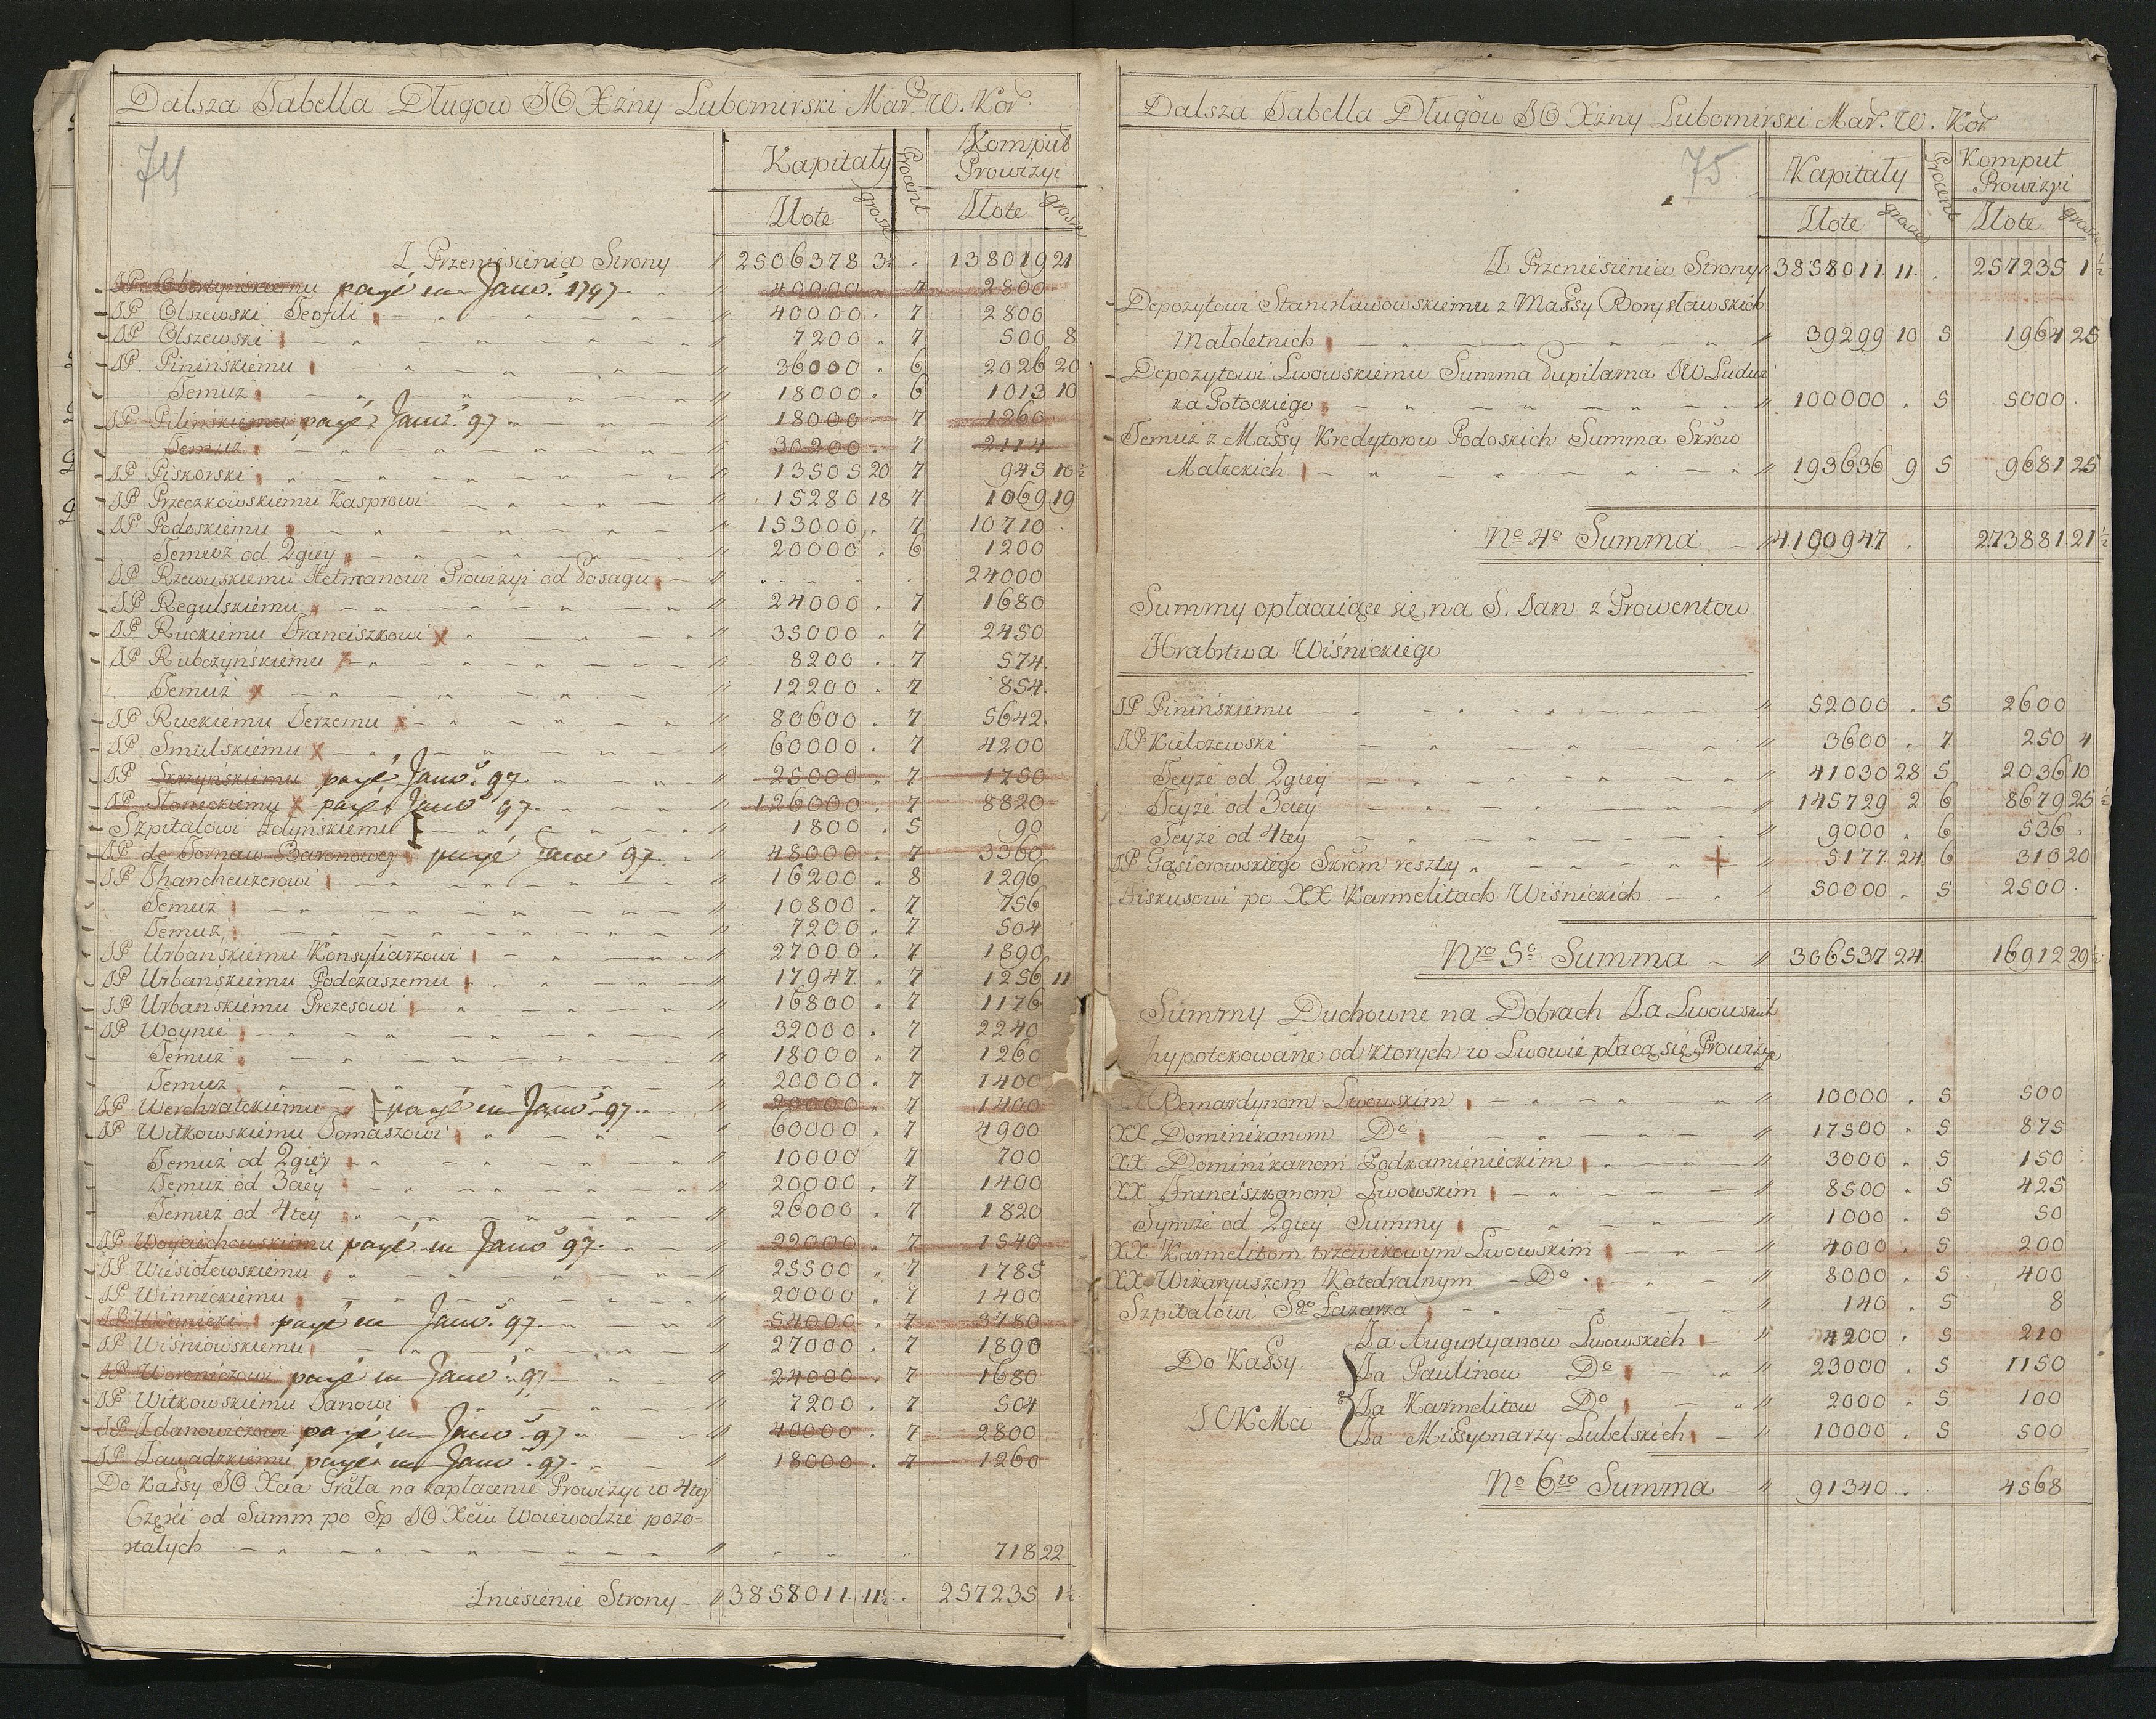 Dalsza Tabella Długow JO Xżny Lubomirski Mar. W. Kor.
74
Kapitały Procent Komput Prowizyi
Złote grosze Złote grosze
Z Przeniesienia Strony 2506378 3½ 138019 21
payé en Janv. 1797. 40000 7 2800
JP Olszewski Teofili 40000 7 2800
JP Olszewski 7200 7 500 8
JP. Pinińskiemu 36000 6 2026 20
Temuż 18000 6 1013 10
JP Pilinskiemu payé Janv. 97 18000 7 1260
Temuż 30200 7 2114
JP Piskorski 13505 20 7 945 10½
JP Przeczkowskiemu Kasprowi 15280 18 7 1069 19
JP Podoskiemu 153000 7 10710
Temuż od 2giey 20000 6 1200
JP Rzewuskiemu Hetmanowi Prowizyi od Posagu 24000
JP Regulskiemu 24000 7 1680
JP Ruckiemu Franciszkowi x 35000 7 2450
JP Rubczyńskiemu x 8200 7 574
Temuż x 12200 7 854
JP Ruckiemu Jerzemu x 80600 7 5642
JP Smulskiemu x 60000 7 4200
JP Skrzyńskiemu payé Janv. 97. 25000 7 1750
JP Słoneckiemu x payé Janv 97. 126000 7 8820
Szpitalowi Żołyńskiemu 1800 5 90
JP de Tornaw Baronowey payé Janv 97. 48000 7 3360
JP 16200 8 1296
Temuż 10800 7 756
Temuż 7200 7 504
JP Urbańskiemu Konsyliarzowi 27000 7 1890
JP Urbańskiemu Podczaszemu 17947 7 1256 11
JP Urbańskiemu Prezesowi 16800 7 1176
JP Woynie 32000 7 2240
Temuż 18000 7 1260
Temuż 20000 7 1400
JP Werchratckiemu payé en Janv. 97. 20000 7 1400
JP Witkowskiemu Tomaszowi 60000 7 4900
Temuż od 2giey 10000 7 700
Temuż od 3ciey 20000 7 1400
Temuż od 4tey 26000 7 1820
JP Woyciechowskiemu payé en Janv 97. 22000 7 1540
JP Wiesiołowskiemu 25500 7 1785
JP Winnickiemu 20000 7 1400
JP Winnicki payé en Janv. 97. 54000 7 3780
JP Wiśniowskiemu 27000 7 1890
JP Woroniczowi payé en Janv. 97 24000 7 1680
JP Witkowskiemu Janowi 7200 7 504
JP Zdanowiczowi payé en Janv. 97 40000 7 2800
JP Zawadzkiemu payé en Janv. 97. 18000 7 1260
Do Kassy JO Xcia Grała na zapłacenie Prowizyi w 4tey
Części od Summ po Sp JO Xciu Woiewodzie pozo-
stałych 718 22
Zniesienie Strony 3858011 11½ 257235 1½
Dalsza Tabella Długow JO Xżny Lubomirski Mar. W. Kor
75
Kapitały Procent Komput Prowizyi
Złote grosze Złote grosze
Z Przeniesienia Strony 3858011 11 257235 1½
Depozytowi Stanisławowskiemu z Massy Borysławskich
Małoletnich 39299 10 5 1964 25
Depozytowi Lwowskiemu Summa Pupilarna JW Ludwi
ka Potockiego 100000 5 5000
Temuż z Massy Kredytorow Podoskich Summa Skrow
Małeckich 193636 9 5 9681 25
No 4o Summa 4190947 273881 21½
Summy opłacaiące się na S. Jan z Prowentow
Hrabstwa Wiśnickiego
JP Pinińskiemu 52000 5 2600
JP Kiełczewski 3600 7 250 4
Teyże od 2giey 41030 28 5 2036 10
Teyże od 3ciey 145729 2 6 8679 25½
Teyże od 4tey 9000 6 536
JP Gąsiorowskiego Skrom reszty + 5177 24 6 310 20
Fiskusowi po XX Karmelitach Wiśnickich 50000 5 2500
Nro 5o Summa 306537 24 16912 29½
Summy Duchowne na Dobrach Za Lwowskich
hypotekowane od ktorych w Lwowie płacą się Prowizye
XX Bernardynom Lwowskim 10000 5 500
XX Dominikanom Do 17500 5 875
XX Dominikanom Podkamienieckim 3000 5 150
XX Franciszkanom Lwowskim 8500 5 425
Tymże od 2giey Summy 1000 5 50
XX Karmelitom trzewikowym Lwowskim 4000 5 200
XX Wikaryuszom Katedralnym Do 8000 5 400
Szpitalowi Sgo Lazarza 140 5 8
Za Augustyanow Lwowskich 4200 5 210
Do Kassy Za Paulinow Do 23000 5 1150
Za Karmelitow Do 2000 5 100
JCKMci Za Missyonarzy Lubelskich 10000 5 500
No 6to Summa 91340 4568